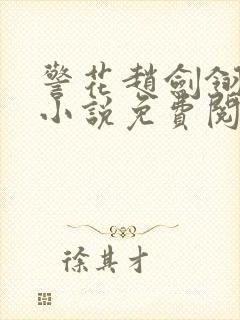 警花趙劍翎
小說免費閱
徐其才